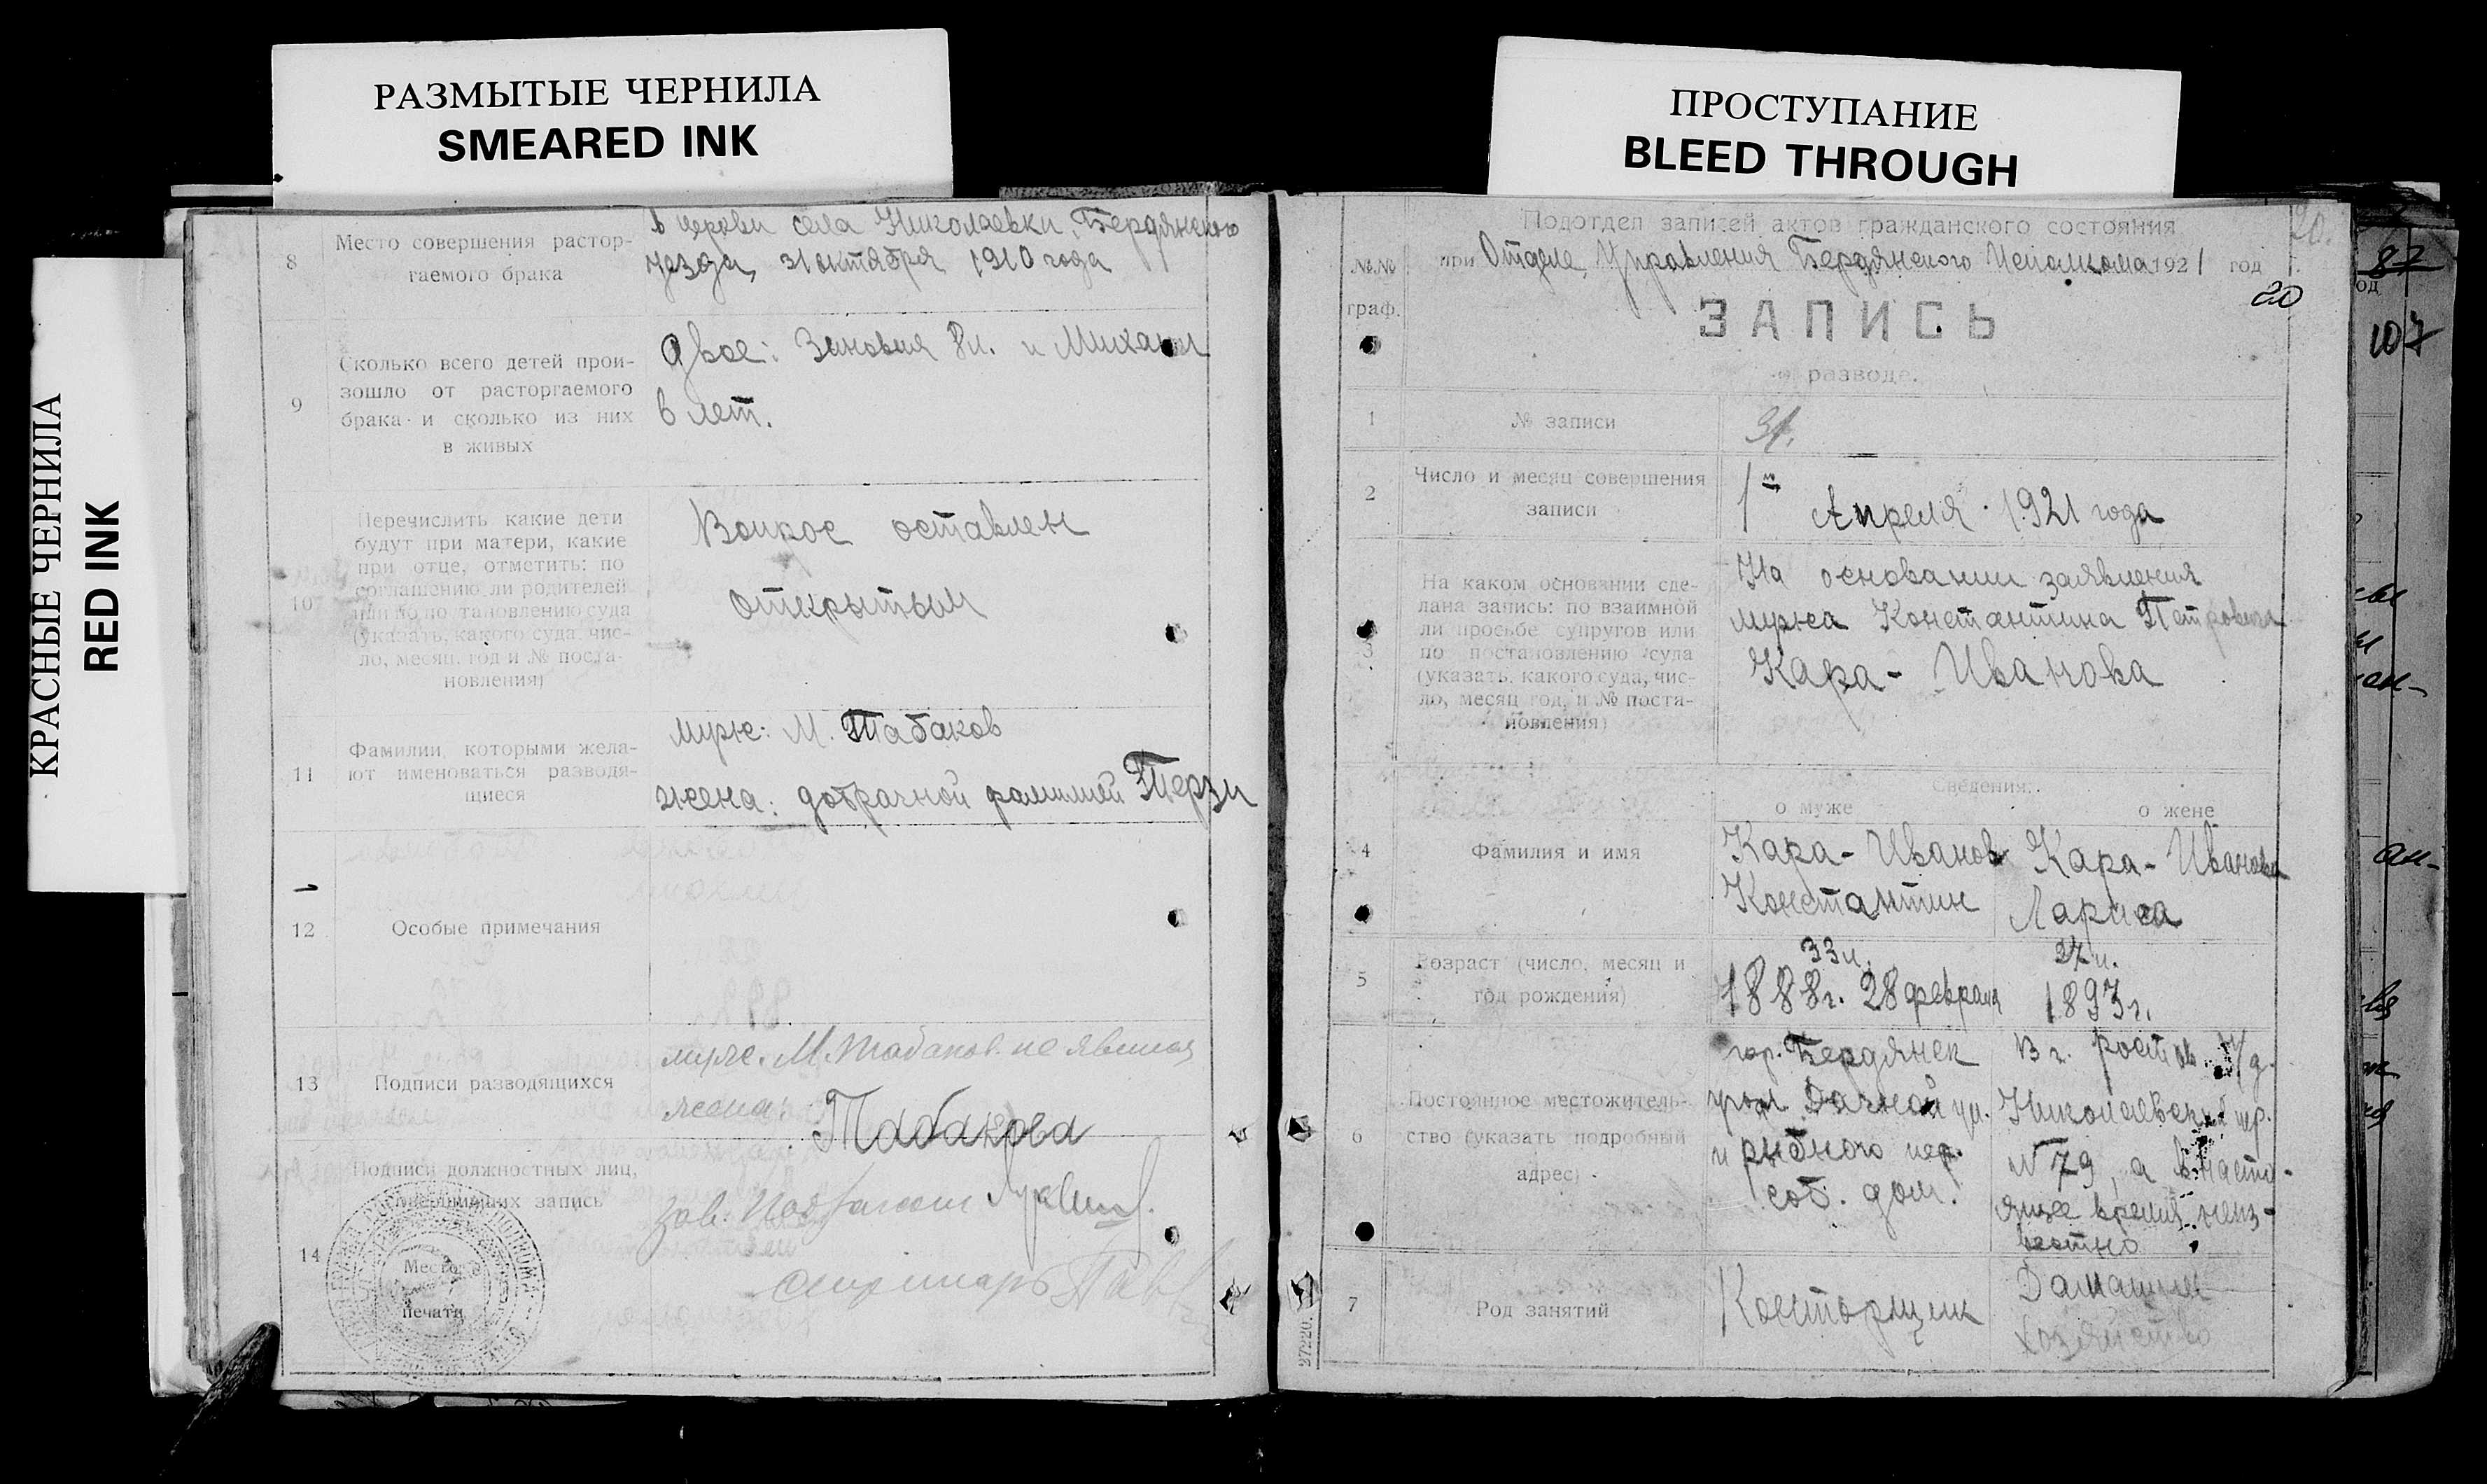 РАЗМЫТЫЕ ЧЕРНИЛА
SMEARED INK
ПРОСТУПАНИЕ
BLEED THROUGH
КРАСНЫЕ ЧЕРНИЛА
RED INK
8
Место совершения растор-
гаемого брака
в церкви села Николаевки, Бердянского
уезда, 31 октября 1910 года
9
Сколько всего детей прои-
зошло от расторгаемого
брака и сколько из них
в живых
двое: Зиновия 8 л. и Михаил
6 лет.
10
Перечислить какие дети
будут при матери, какие
при отце, отметить: по
соглашению ли родителей
или по постановлению суда
(указать, какого суда, чис-
ло, месяц, год и № поста-
новления)
Вопрос оставлен
открытым
11
Фамилии, которыми жела-
ют именоваться разводя-
щиеся
муж: М. Табаков
жена: добрачной фамилией Терзи
12
Особые примечания
13
Подписи разводящихся
муж. М. Табаков не явился
жена: Табакова
14
Подписи должностных лиц,
совершивших запись
Место
печати
Зав.
секретарь
Подотдел записей актов гражданского состояния
20.
№№
граф.
при Отделе Управления Бердянского Исполкома 1921 год
20
ЗАПИСЬ
о разводе.
1
№ записи
31.
2
Число и месяц совершения
записи
1го Апреля 1921 года
3
На каком основании сде-
лана запись: по взаимной
ли просьбе супругов или
по постановлению суда
(указать, какого суда, чис-
ло, месяц, год, и № поста-
новления)
На основании заявления
мужа Константина Петровича
Кара-Иванова
Сведения:
о муже
о жене
4
Фамилия и имя
Кара-Иванов
Константин
Кара-Иванова
Лариса
5
Возраст (число, месяц и
год рождения)
33 л.
1888 г. 28 февраля
27 л.
1893 г.
6
Постоянное местожитель-
ство (указать подробный
адрес)
гор. Бердянск
угол Дачной ул.
и рыбного пер.
соб. дом.
В г. Ростов н/Д.
Николаевский пер.
№ 79, а в насто-
ящее время неиз-
вестно
7
Род занятий
Конторщик
Домашнее
хозяйство
27220.
87
107